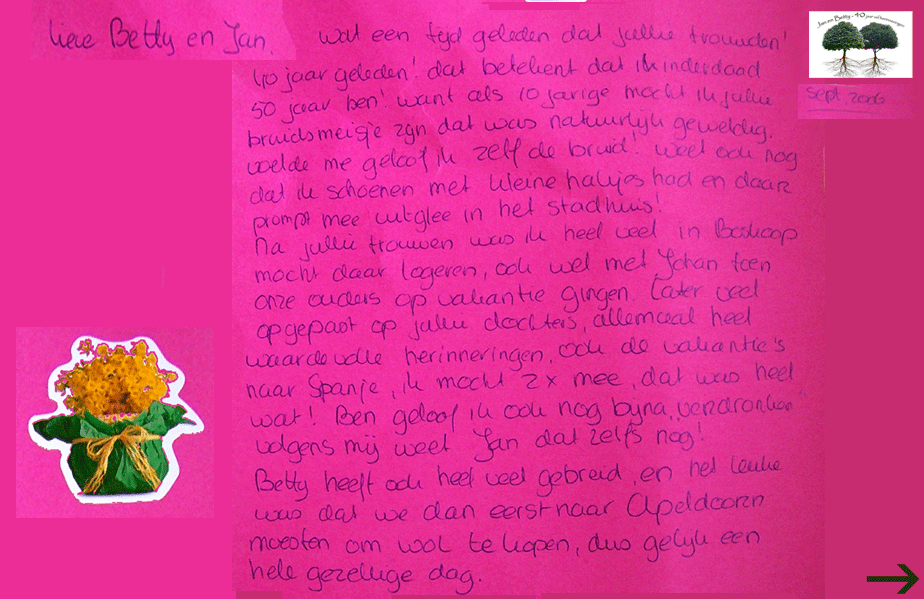 lieve Betty en Jan.
Jan en Betty - 40 jaar
sept 2006
wat een tyd geleden dat jullie trouwden!
40 jaar geleden! dat betekent dat ik inderdaad
50 jaar ben! want als 10 jarige mocht ik jullie
bruidsmeisje zyn dat was natuurlyk geweldig.
voelde me geloof ik zelf de bruid! weet ook nog
dat ik schoenen met kleine hakjes had en daar
prompt mee uitglee in het stadhuis!
Na jullie trouwen was ik heel veel in Boskoop
mocht daar logeren, ook wel met Johan toen
onze ouders op vakantie gingen. Later veel
opgepast op jullie dochters, allemaal heel
waardevolle herinneringen, ook de vakantie's
naar Spanje, ik mocht 2x mee, dat was heel
wat! Ben geloof ik ook nog byna verdronken
volgens mij weet Jan dat zelfs nog!
Betty heeft ook heel veel gebreid, en het leuke
was dat we dan eerst naar Apeldoorn
moesten om wol te kopen, dus gelyk een
hele gezellige dag.